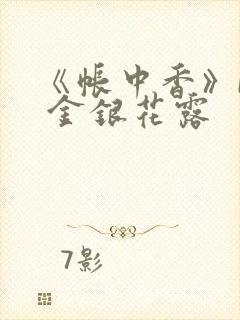 《帐中香》
金银花露
7影